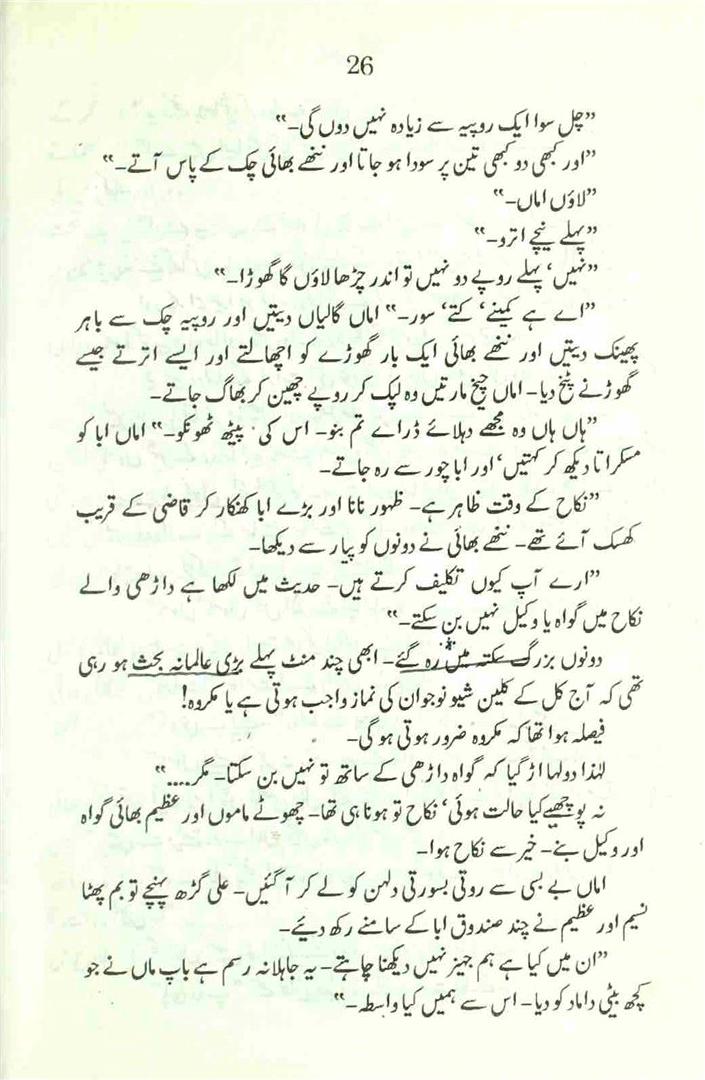 26
”چل سوا ایک روپیہ سے زیادہ نہیں دوں گی۔“
”اور کبھی دو کبھی تین پر سودا ہو جاتا اور ننھے بھائی چک کے پاس آتے۔“
”لاؤں اماں۔“
”پہلے نیچے اترو۔“
”نہیں‘ پہلے روپے دو نہیں تو اندر چڑھا لاؤں گا گھوڑا۔“
”اے ہے کمینے‘ کتے‘ سور۔“ اماں گالیاں دیتیں اور روپیہ چک سے باہر
پھینک دیتیں اور ننھے بھائی ایک بار گھوڑے کو اچھالتے اور ایسے اترتے جیسے
گھوڑے نے پٹخ دیا۔ اماں چیخ مارتیں وہ لپک کر روپے چھین کر بھاگ جاتے۔
”ہاں ہاں وہ مجھے دہلائے ڈرائے تم بنو۔ اس کی پیٹھ ٹھونکو۔“ اماں ابا کو
مسکراتا دیکھ کر کہتیں‘ اور ابا چور سے رہ جاتے۔
”نکاح کے وقت ظاہر ہے۔ ظہور نانا اور بڑے ابا کھنکار کر قاضی کے قریب
کھسک آئے تھے۔ ننھے بھائی نے دونوں کو پیار سے دیکھا۔
”ارے آپ کیوں تکلیف کرتے ہیں۔ حدیث میں لکھا ہے داڑھی والے
نکاح میں گواہ یا وکیل نہیں بن سکتے۔“
دونوں بزرگ سکتہ میں رہ گئے۔ ابھی چند منٹ پہلے بڑی عالمانہ بحث ہو رہی
تھی کہ آج کل کے کلین شیو نوجوان کی نماز واجب ہوتی ہے یا مکروہ!
فیصلہ ہوا تھا کہ مکروہ ضرور ہوتی ہوگی۔
لہٰذا دولہا اڑ گیا کہ گواہ داڑھی کے ساتھ تو نہیں بن سکتا۔ مگر....“
نہ پوچھیے کیا حالت ہوئی‘ نکاح تو ہونا ہی تھا۔ چھوٹے ماموں اور عظیم بھائی گواہ
اور وکیل بنے۔ خیر سے نکاح ہوا۔
اماں بے بسی سے روتی بسورتی دلہن کو لے کر آ گئیں۔ علی گڑھ پہنچے تو بم پھٹا
نسیم اور عظیم نے چند صندوق ابا کے سامنے رکھ دیئے۔
”ان میں کیا ہے ہم جہیز نہیں دیکھنا چاہتے۔ یہ جاہلانہ رسم ہے باپ ماں نے جو
کچھ بیٹی داماد کو دیا۔ اس سے ہمیں کیا واسطہ۔“